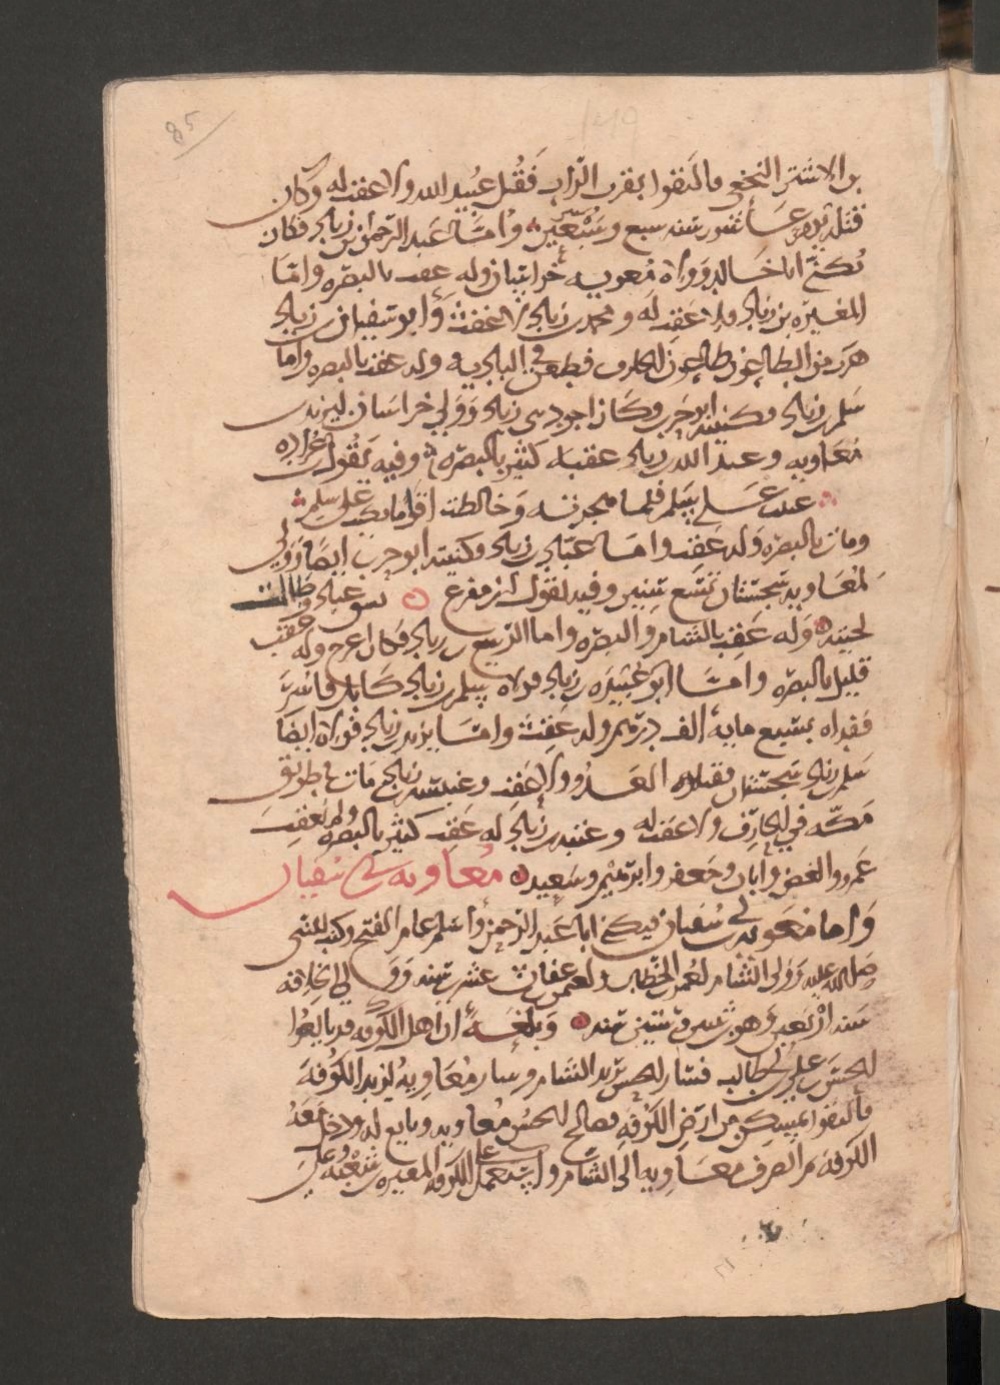 85
بن الاشتر النخعي فالتقوا بقرب الزاب فقتل عبيد الله ولا عقب له وكان
قتله يوم عاشور سنه سبع وستين واما عبد الرحمن بن زياد فكان
يكنى ابا خالد وولاه معويه خراسان وله عقب بالبصره واما
المغيره بن زياد ولا عقب له ومحمد بن زياد لا عقب وابو سفيان بن زياد
هرب من الطاعون طاعون الجارف فطعن في الباديه وله عقب بالبصره واما
سلم بن زياد وكنيته ابو حرب وكان اجود بني زياد وولي خراسان ليزيد بن
معاويه وعبد الله بن زياد عقبه كثير بالبصره وفيه يقول عراده
عتبت على سلم فلما هجرته وخالطت اقواما بكيت على سلم
ومات بالبصره وله عقب واما عباد بن زياد وكنيته ابو حرب ايضا وولي
لمعاويه سجستان تسع سنين وفيه يقول ابن مفرغ سبق عباد وصلت
لحيته وله عقب بالشام والبصره واما الربيع بن زياد فكان اعرج وله عقب
قليل بالبصره واما ابو عبيده بن زياد فولاه سلم بن زياد كابل فاسر
ففداه بسبع مايه الف درهم وله عقب واما يزيد بن زياد فولاه ايضا
سلم بن زياد سجستان فقتله العدو ولا عقب وعنبسه بن زياد مات في طريق
مكه في الجارف ولا عقب له وعتبه بن زياد له عقب كثير بالبصره ولم يعقب
عمرو والغصن وابان وجعفر وابرهيم وسعيد معاويه بن ابي سفيان
واما معويه بن ابي سفيان فيكنى ابا عبد الرحمن واسلم عام الفتح وكتب للنبي
صلى الله عليه وولي الشام لعمر بن الخطاب ولعثمن بن عفان عشرين سنه وولي الخلافه
سنه اربعين وهو ابن ستين سنه وبلغه ان اهل الكوفه قد بايعوا
للحسن بن علي بن ابي طالب فسار للحسن يريد الشام وسار معاويه يريد الكوفه
فالتقوا بمسكن من ارض الكوفه فصالح للحسن معاويه وبايع له ودخل معه
الكوفه ثم انصرف معاويه الى الشام واستعمل على الكوفه المغيره بن شعبه على